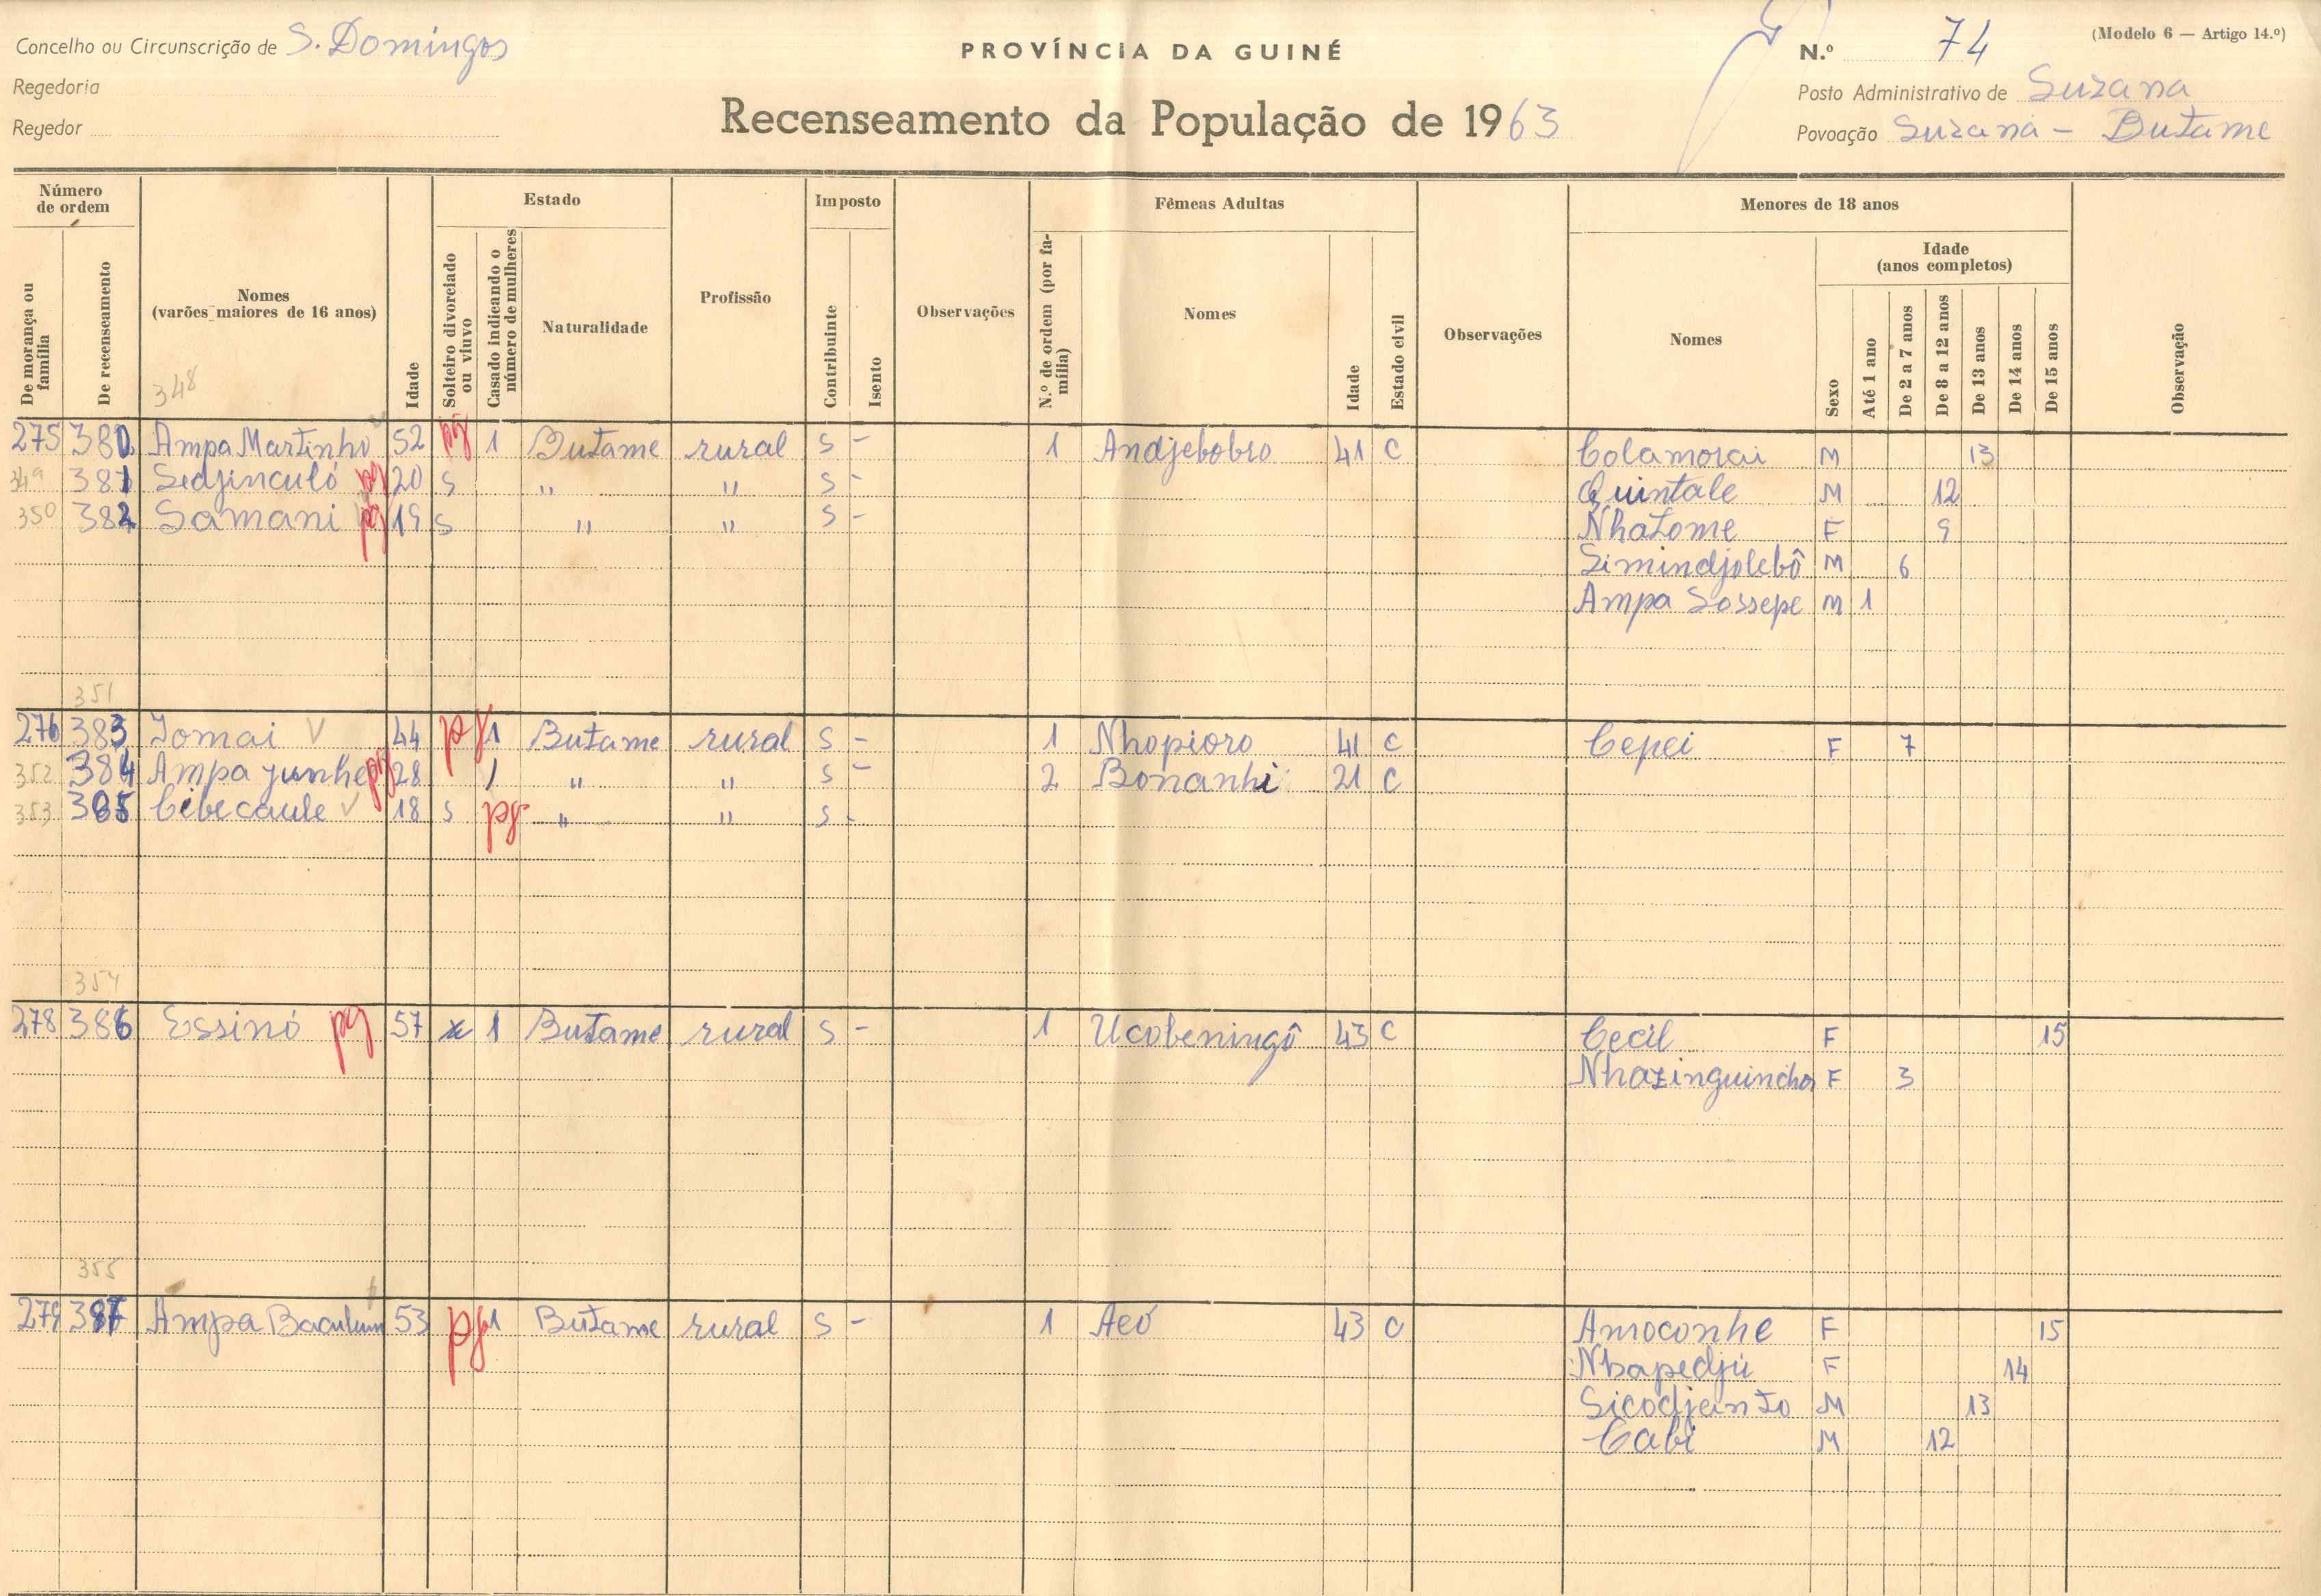 Concelho ou Circunscrição de S. Domingos
Regedoria
Regedor
PROVÍNCIA DA GUINÉ
Recenseamento da População de 1963
(Modelo 6 — Artigo 14.º)
N.º 74
Posto Administrativo de Suzana
Povoação Suzana - Butame
Número de ordem
De morança ou família
De recenseamento
Nomes
(varões maiores de 16 anos)
348
Idade
Estado
Solteiro divorciado ou viuvo
Casado indicando o número de mulheres
Naturalidade
Profissão
Imposto
Contribuinte
Isento
Observações
Fêmeas Adultas
N.º de ordem (por família)
Nomes
Idade
Estado civil
Observações
Menores de 18 anos
Nomes
Sexo
Idade
(anos completos)
Até 1 ano
De 2 a 7 anos
De 8 a 12 anos
De 13 anos
De 14 anos
De 15 anos
Observação
275 380 Ampa Martinho 52 pg 1 Butame rural S - 1 Andjebobro 41 C Colamorai M 13
349 381 Sedjinculó pg 20 S " " S - Quintale M 12
350 382 Samani pg 19 S " " S - Nhatome F 9
Simindjolebô M 6
Ampa Sossepe M 1
351
276 383 Jomai V 44 pg 1 Butame rural S - 1 Nhopioro 41 C Cepei F 7
352 384 Ampa Junhe pg 28 / " " S - 2 Bonanhi 21 C
353 385 Cibecaule V 18 S pg " " S -
354
278 386 Essinó pg 57 x 1 Butame rural S - 1 Ucobeningô 43 C Cecil F 15
Nhazinguincho F 3
355
279 387 Ampa 53 pg 1 Butame rural S - 1 Aeó 43 C Amoconhe F 15
Nhapedjú F 14
Sicodjanto M 13
Cabi M 12